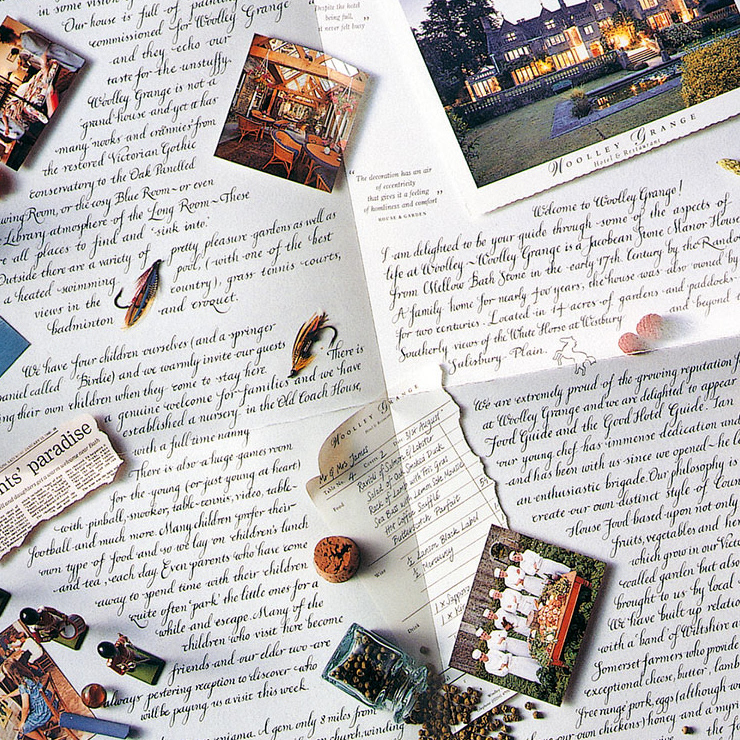 in some of the
Our house is full of paintings
commissioned for Woolley Grange
and they echo our
taste for the unstuffy.
Woolley Grange is not a
'grand' house and yet it has
many 'nooks and crannies' from
the restored Victorian Gothic
conservatory to the Oak Panelled
Room, or the cosy Blue Room – or even
Library atmosphere of the Long Room – These
all places to find and 'sink into.'
Outside there are a variety of pretty pleasure gardens as well as
a heated swimming pool, (with one of the best
views in the country), grass tennis courts,
badminton and croquet.
We have four children ourselves (and a springer
called Birdie) and we warmly invite our guests
their own children when they come to stay here. There is
genuine welcome for families and we have
established a nursery in the Old Coach House,
with a full time nanny
There is also a huge games room
for the young (or just young at heart)
with pinball, snooker, table-tennis, video, table-
football and much more. Many children prefer their
own type of food and so we lay on children's lunch
and tea, each day. Even parents who have come
away to spend time with their children
quite often 'park' the little ones for a
while and escape. Many of the
children who visit here become
friends and our elder two are
always pestering reception to discover who
will be paying us a visit this week.
A gem only 8 miles from
church, winding
Despite the hotel
being full,
it never felt
"The decoration has an air
of eccentricity
that gives it a feeling
of homliness and comfort"
HOUSE & GARDEN
WOOLLEY GRANGE
Hotel & Restaurant
Welcome to Woolley Grange!
I am delighted to be your guide through some of the aspects of
life at Woolley – Woolley Grange is a Jacobean Stone Manor House
from Mellow Bath Stone in the early 17th Century by the
A family home for nearly 400 years, the house was also owned by
for two centuries. Located in 14 acres of gardens and paddocks
Southerly views of the White Horse at Westbury and beyond
Salisbury Plain.
We are extremely proud of the growing reputation
at Woolley Grange and we are delighted to appear
Food Guide and the Good Hotel Guide. Ian
our young chef has immense dedication and
and has been with us since we opened – he
an enthusiastic brigade. Our philosophy is
create our own distinct style of
House Food based upon not only
fruits, vegetables and
which grow in our
walled garden but also
brought to us by local
We have built up
with a 'band' of Wiltshire
Somerset farmers who provide
exceptional cheese, butter,
free range pork, eggs (although
our own chickens) honey and a
paradise
WOOLLEY GRANGE
Mr & Mrs James
Table No. 4 Covers 2 Date 21st August
Food
Ravioli of Salmon & Lobster
Salad of Oak Smoked Duck
Rack of Lamb with Foie Gras
Sea Bass with Lemon
Hot Coffee Soufflé
Butterscotch Parfait
Wine
½ Lanson Black Label
½ Mercurey
Drink